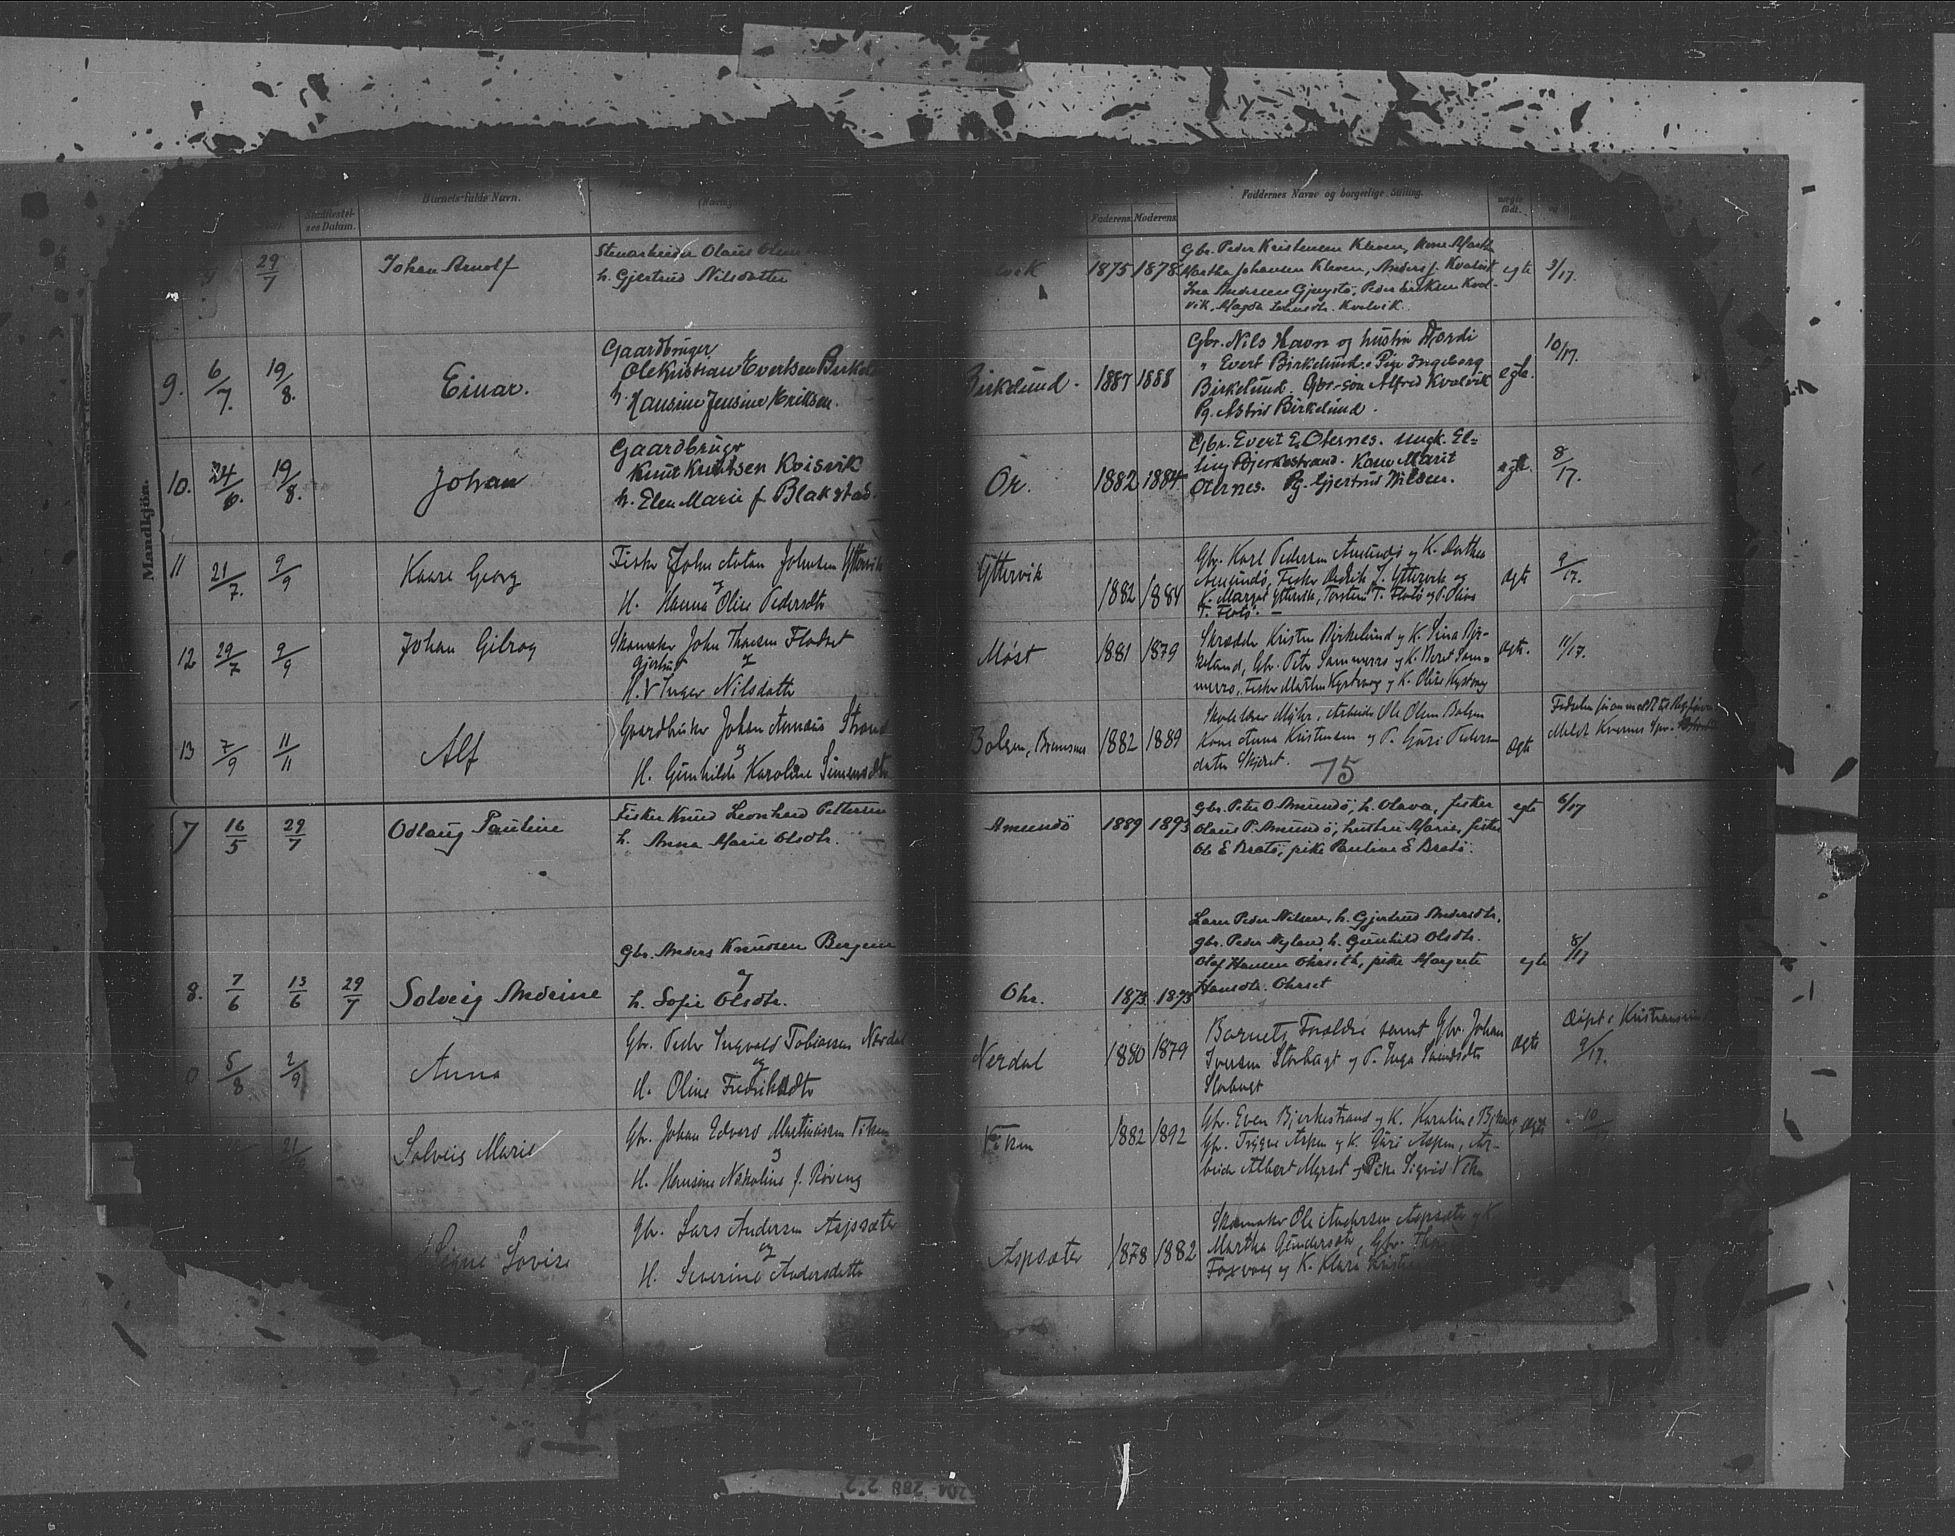 Barnets fulde Navn.
Stadfæstel-
ses Datum.
Faderens
Moderens
Faddernes Navne og borgerlige Stilling.
uægte
født.
Mandkjön.
29/7
Johan Arnolf
Stenarbeider Olaus
h. Gjertrud Nilsdatter
1875 1878
Gbr. Peder Kristensen Kleven, Kone Marth
Martha Johansen Kleven, Anders J. Kvalvik
Ina Andersen Gjengstø, Peder Eriksen Kval-
vik, Magda Kvalvik.
egte
3/17.
9. 6/7. 19/8.
Einar.
Gaardbruger
Ole Kristian Evertsen Birkel
h. Hansine Jensine Eriksen.
Birkelund.
1887 1888
Gbr. Nils Havn og hustru Mordi
" Evert Birkelund. Pige Ingeborg
Birkelund. Gbr-søn Alfred Kvalvik
Pg. Astrid Birkelund.
egte.
10/17.
10. 24/6. 19/8.
Johan
Gaardbruger
Knut Knutsen Kvisvik
h. Elen Marie f Blakstad.
Ör.
1882 1884
Gbr. Evert E. Oternes. ungk. El-
ling Bjerkestrand. Kone Marit
Oternes. Pg. Gjertrud Nilsen.
egte.
8/17.
11 21/7. 9/9
Kaare Georg
Fisker John Anton Johnsen Yttervik
og
H. Hanna Oline Pedersdtr
Yttervik
1882 1884
Gbr. Karl Pedersen Amundø og K. Dorthea
Amundø, Fisker Fredrik J. Yttervik og
K. Margat Yttervik, Torstein T. Flotø og P. Oline
T. Flotø. —
ægte
9/17.
12 29/7 9/9
Johan Gilroy
Skomaker John Thoresen Flatset
Gjertrud og
H. V Inger Nilsdatter
Møst
1881 1879
Skrædder Kristen Bjerkelund og K. Sina Bjer-
keland, Gbr. Peter Sammerro og K. Beret Sam-
merro, Fisker Martin Nystrøng og K. Oline Nystrøng
ægte.
11/17.
13 7/9 11/11
Alf
Gaardbruker Johan Arneus Strand
og
H. Gunhilde Karoline Simensdtr
Bolgen, Bremsnes
1882 1889
Skolelærer Myhr, Arbeider Ole Olsen Bolgen
Kone Anna Kristensen og P. Guri Peders
datter Skjeret. 75
ægte
Meldt Kvernes Spr.
7 16/5 29/7
Odlaug Pauline
Fisker Knud Leonhard Pettersen
h. Anna Marie Olsdtr.
Amundö
1889 1893
Gbr. Peter O. Amundö, h. Olava, fisker
Olaus P. Amundö, hustru Marie, fisker
Ol E Bratö, pike Pauline E Bratö.
egte
6/17
8. 7/6 13/6 29/7
Solveig Andrine
Gbr. Anders Knudsen Bergem
og
h. Sofie Olsdtr.
Ohr.
1873 1875
Lars Peder Nilsen, h. Gjertrud Andersdtr.
gbr. Peder Nyland, h. Gunhild Olsdtr.
Olaf Hansen Ohrseth, pike Margrete
Hansdtr. Ohrset
egte
8/17
5/8 2/9
Anna
Gbr. Peder Ingvald Tobiassen Nerdal
og
H. Oline Fredriksdtr
Nerdal
1880 1879
Barnets Forældre samt Gbr. Johan
Iversen Storbagt og P. Inga Svendsdtr
Storbagt
ægte
Døpt i Kristiansund
9/17.
21/9
Solveig Marie
Gbr. Johan Edvard Martiniussen Viken
og
H. Hansine Nikoline f. Røveng
Viken
1882 1892
Gbr. Even Bjerkestrand og K. Karoline Bjerkestr
Gbr. Trygve Aspen og K. Guri Aspen, Ar-
beider Albert Myrset og Pike Sigrid Viken
ægte
10/17
Signe Lovise
Gbr. Lars Andersen Aspsæter
og
H. Severine Andersdatter
Aspsæter
1878 1882
Skomaker Ole Andersen Aspsæter og K
Martha Gundersdtr, Gbr. Tho
og K. Klara Kristi
204 288 2.2